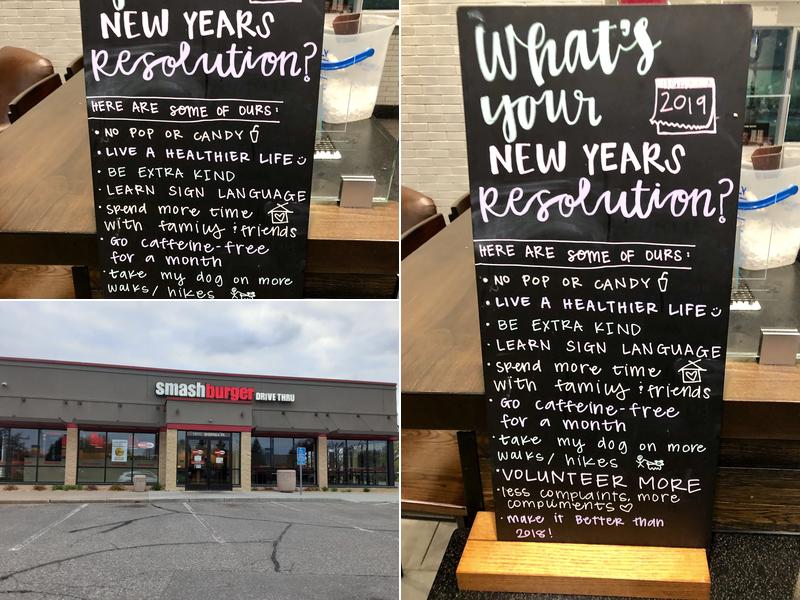 NEW YEARS
Resolution?
HERE ARE some OF OURS:
• NO POP OR CANDY
• LIVE A HEALTHIER LIFE
• BE EXTRA KIND
• LEARN SIGN LANGUAGE
• spend more time
with family & friends
• Go caffeine-free
for a month
• take my dog on more
walks/ hikes
smashburger DRIVE THRU
What's
your
2019
NEW YEARS
Resolution?
HERE ARE some OF OURS:
• NO POP OR CANDY
• LIVE A HEALTHIER LIFE
• BE EXTRA KIND
• LEARN SIGN LANGUAGE
• spend more time
with family & friends
• Go caffeine-free
for a month
• take my dog on more
walks/ hikes
• VOLUNTEER MORE
• less complaints, more
compliments
• make it Better than
2018!